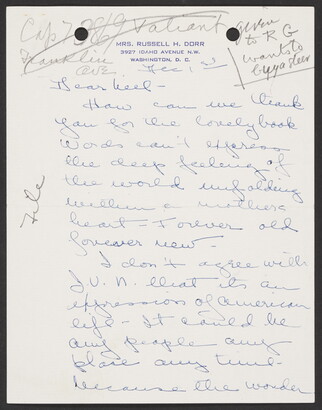 Cap 7369 Valiant
Franklin
ave.
given
to RG
wants to
buy a deer
MRS. RUSSELL H. DORR
3927 IDAHO AVENUE N.W.
WASHINGTON, D. C.
Dec. 1st
Dear
How can we thank
you for the lovely book
Words can't express
the deep feeling of
the world unfolding
within a mothers
heart - Forever old
forever new -
File
I don't agree with
J.V.N. that its an
expression of American
life - It could be
any people any
place any time -
because the wonder